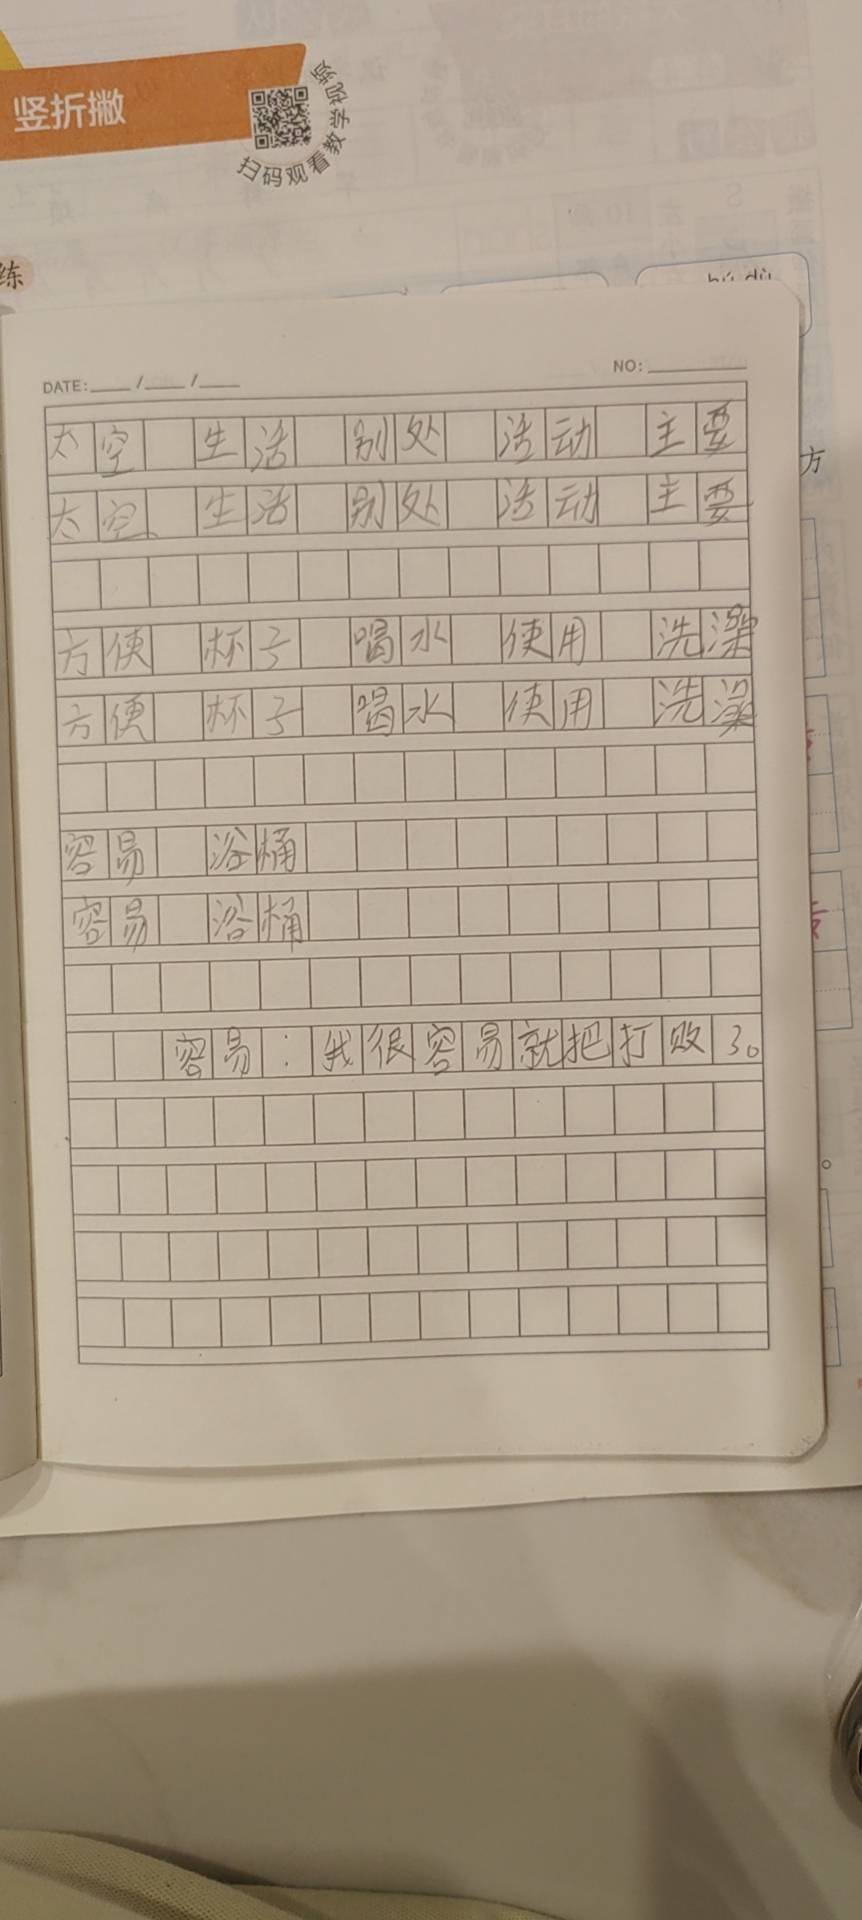 竖折撇
扫码观看教学视频
练
DATE: / /
NO:
太空 生活 别处 活动 主要
太空 生活 别处 活动 主要
方
方便 杯子 喝水 使用 洗澡
方便 杯子 喝水 使用 洗澡
容易 浴桶
容易 浴桶
容易：我很容易就把打败了。